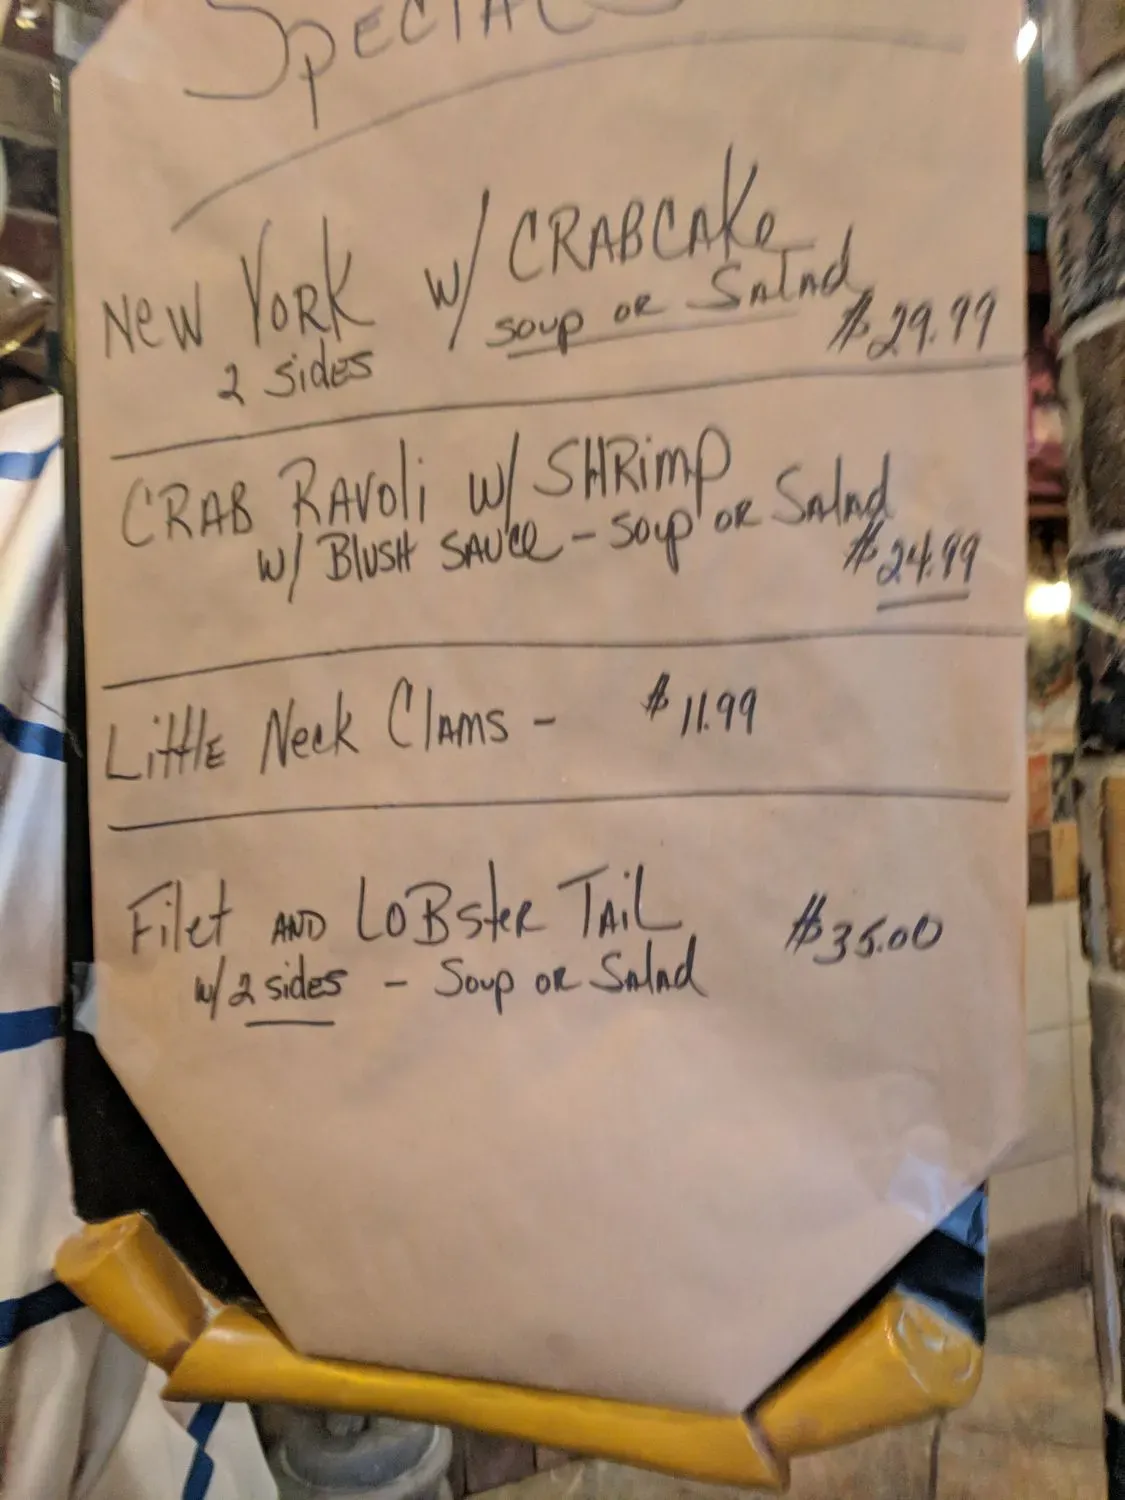 SPECIALS
New York w/ CRABCAKe
2 sides soup or Salad $29.99
CRAB RAVOli w/ SHRimp
w/ BlusH SAUce - Soup or Salad
$24.99
Little Neck Clams - $11.99
Filet AND LOBster TAiL $35.00
w/ 2 sides - Soup or Salad